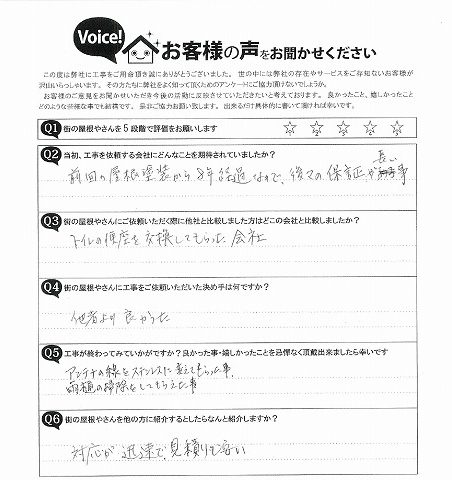 Voice!
お客様の声をお聞かせください
この度は弊社に工事をご用命頂き誠にありがとうございました。世の中には弊社の存在やサービスをご存知ないお客様が
沢山いらっしゃいます。その方たちに弊社をよく知って頂くためのアンケートにご協力頂けないでしょうか。
お客様のご意見をお聞かせいただき今後の活動に反映させていただきたいと考えております。良かったこと、嬉しかったこと
どのような些細な事でも結構です。是非ご協力お願い致します。出来るだけ具体的に書いて頂ければ幸いです。
Q1 街の屋根やさんを5段階で評価をお願いします ☆ ☆ ☆ ☆ ☆
Q2 当初、工事を依頼する会社にどんなことを期待されていましたか?
前回の屋根塗装から8年経過なので、後々の保証が長い事
Q3 街の屋根やさんにご依頼いただく際に他社と比較しました方はどこの会社と比較しましたか?
トイレの便座を交換してもらった会社
Q4 街の屋根やさんに工事をご依頼いただいた決め手は何ですか?
他者より良かった
Q5 工事が終わってみていかがですか?良かった事・嬉しかったことを忌憚なく頂戴出来ましたら幸いです
アンテナの線をステンレスに変えてもらった事、
雨樋の掃除をしてもらえた事
Q6 街の屋根やさんを他の方に紹介するとしたらなんと紹介しますか?
対応が迅速で、見積りも